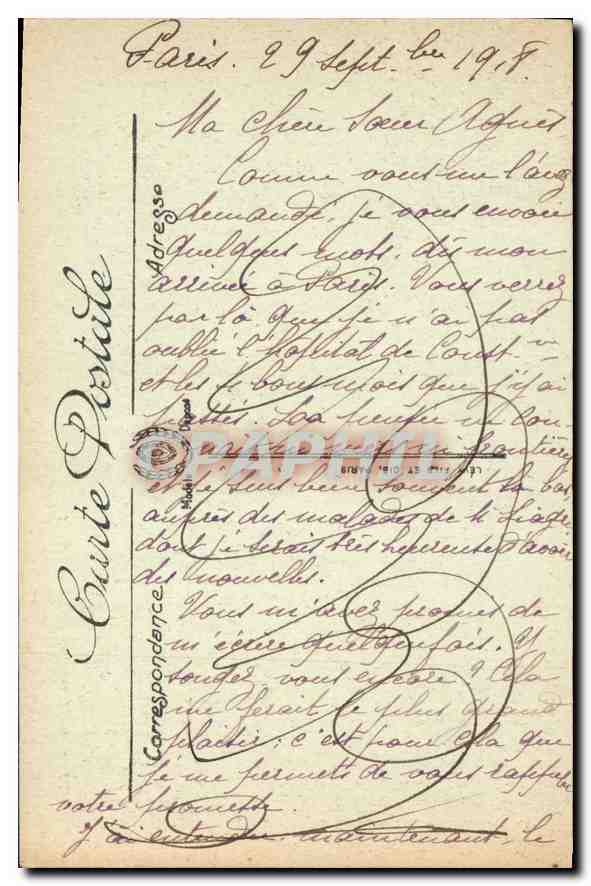 Paris. 29 Septbre 1918.
Ma chère Sœur Agnès
Comme vous me l'avez
demandé, je vous envoie
quelques mots, dès mon
arrivée à Paris. Vous verrez
par là que je n'ai pas
oublié l'hôpital de Const
et les bons mois que j'y ai
passés. La pensée ne con-
frontière
et je suis bien souvent là-bas
auprès des malades de
dont je serais très heureuse d'avoir
des nouvelles.
Vous m'avez promis de
m'écrire quelquefois. Y
songez vous encore ? Cela
me ferait le plus grand
plaisir ; c'est pour cela que
je me permets de vous rappeler
votre promesse.
J'ai entendu maintenant, le
Carte Postale
Adresse
Correspondance
Modèle Déposé
LÉVY FILS ET CIE, PARIS
PAPHIL